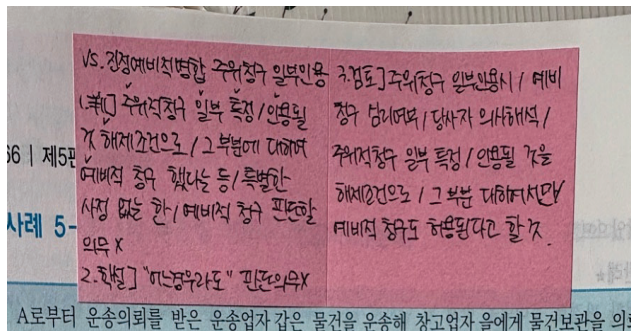 vs. 진정예비적병합 주위청구 일부인용
1. 判] 주위적청구 일부 특정/인용될
것 해제조건으로/그 부분에 대하여
예비적 청구 했다는 등/특별한
사정 없는 한/예비적 청구 판단할
의무 x
2. 학설] "어느경우라도" 판단의무x
3. 검토] 주위청구 일부인용시/예비
청구 심리여부/당사자 의사해석/
주위적청구 일부 특정/인용될 것을
해제조건으로/그 부분 대하여서만
예비적 청구도 허용된다고 할 것.
66 | 제5편
사례 5-
A로부터 운송의뢰를 받은 운송업자 갑은 물건을 운송해 창고업자 을에게 물건보관을 의